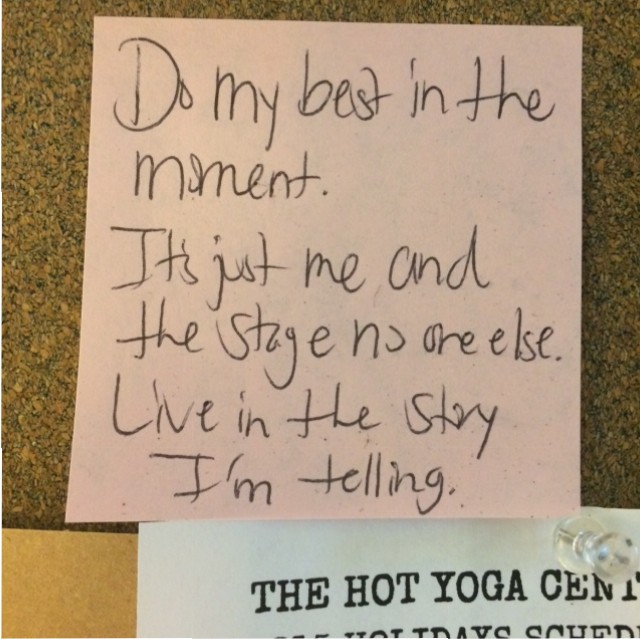 Do my best in the
moment.
It's just me and
the stage no one else.
Live in the story
I'm telling.
THE HOT YOGA CENT
HOLIDAYS SCHED